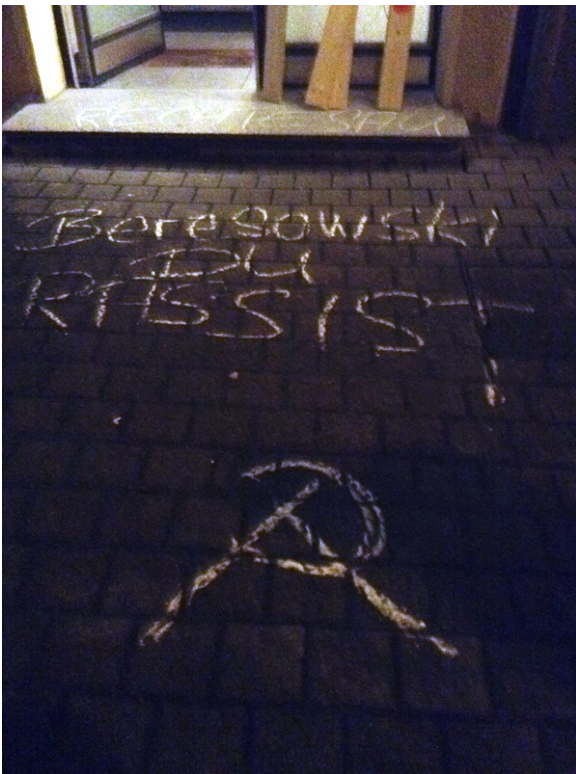 Beresowski
DU
RASSIST